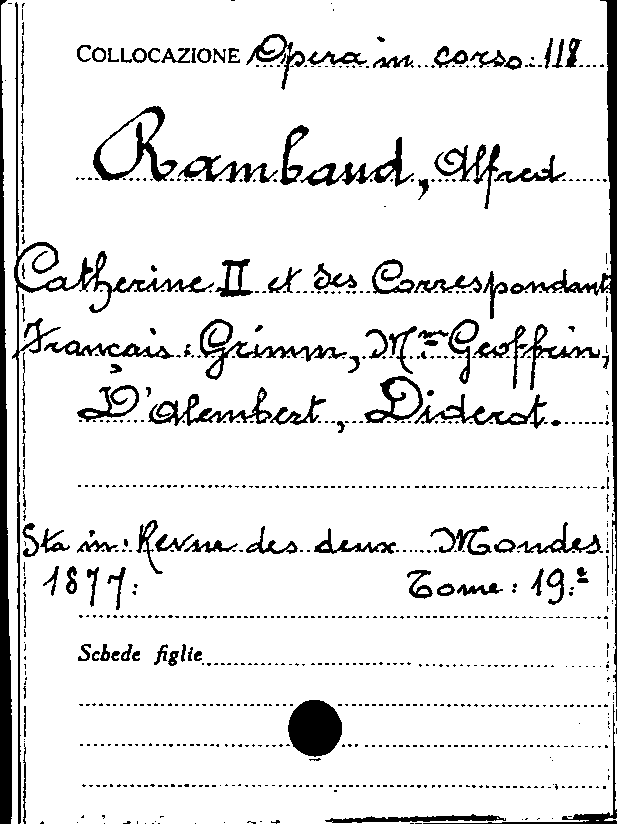 COLLOCAZIONE Opera in corso: 118
Rambaud, Alfred
Catherine II et ses Correspondant
Français: Grimm, Mme Geoffrin,
D'Alembert, Diderot.
Sta in: Revue des deux Mondes
1877: Tome: 19:e
Schede figlie